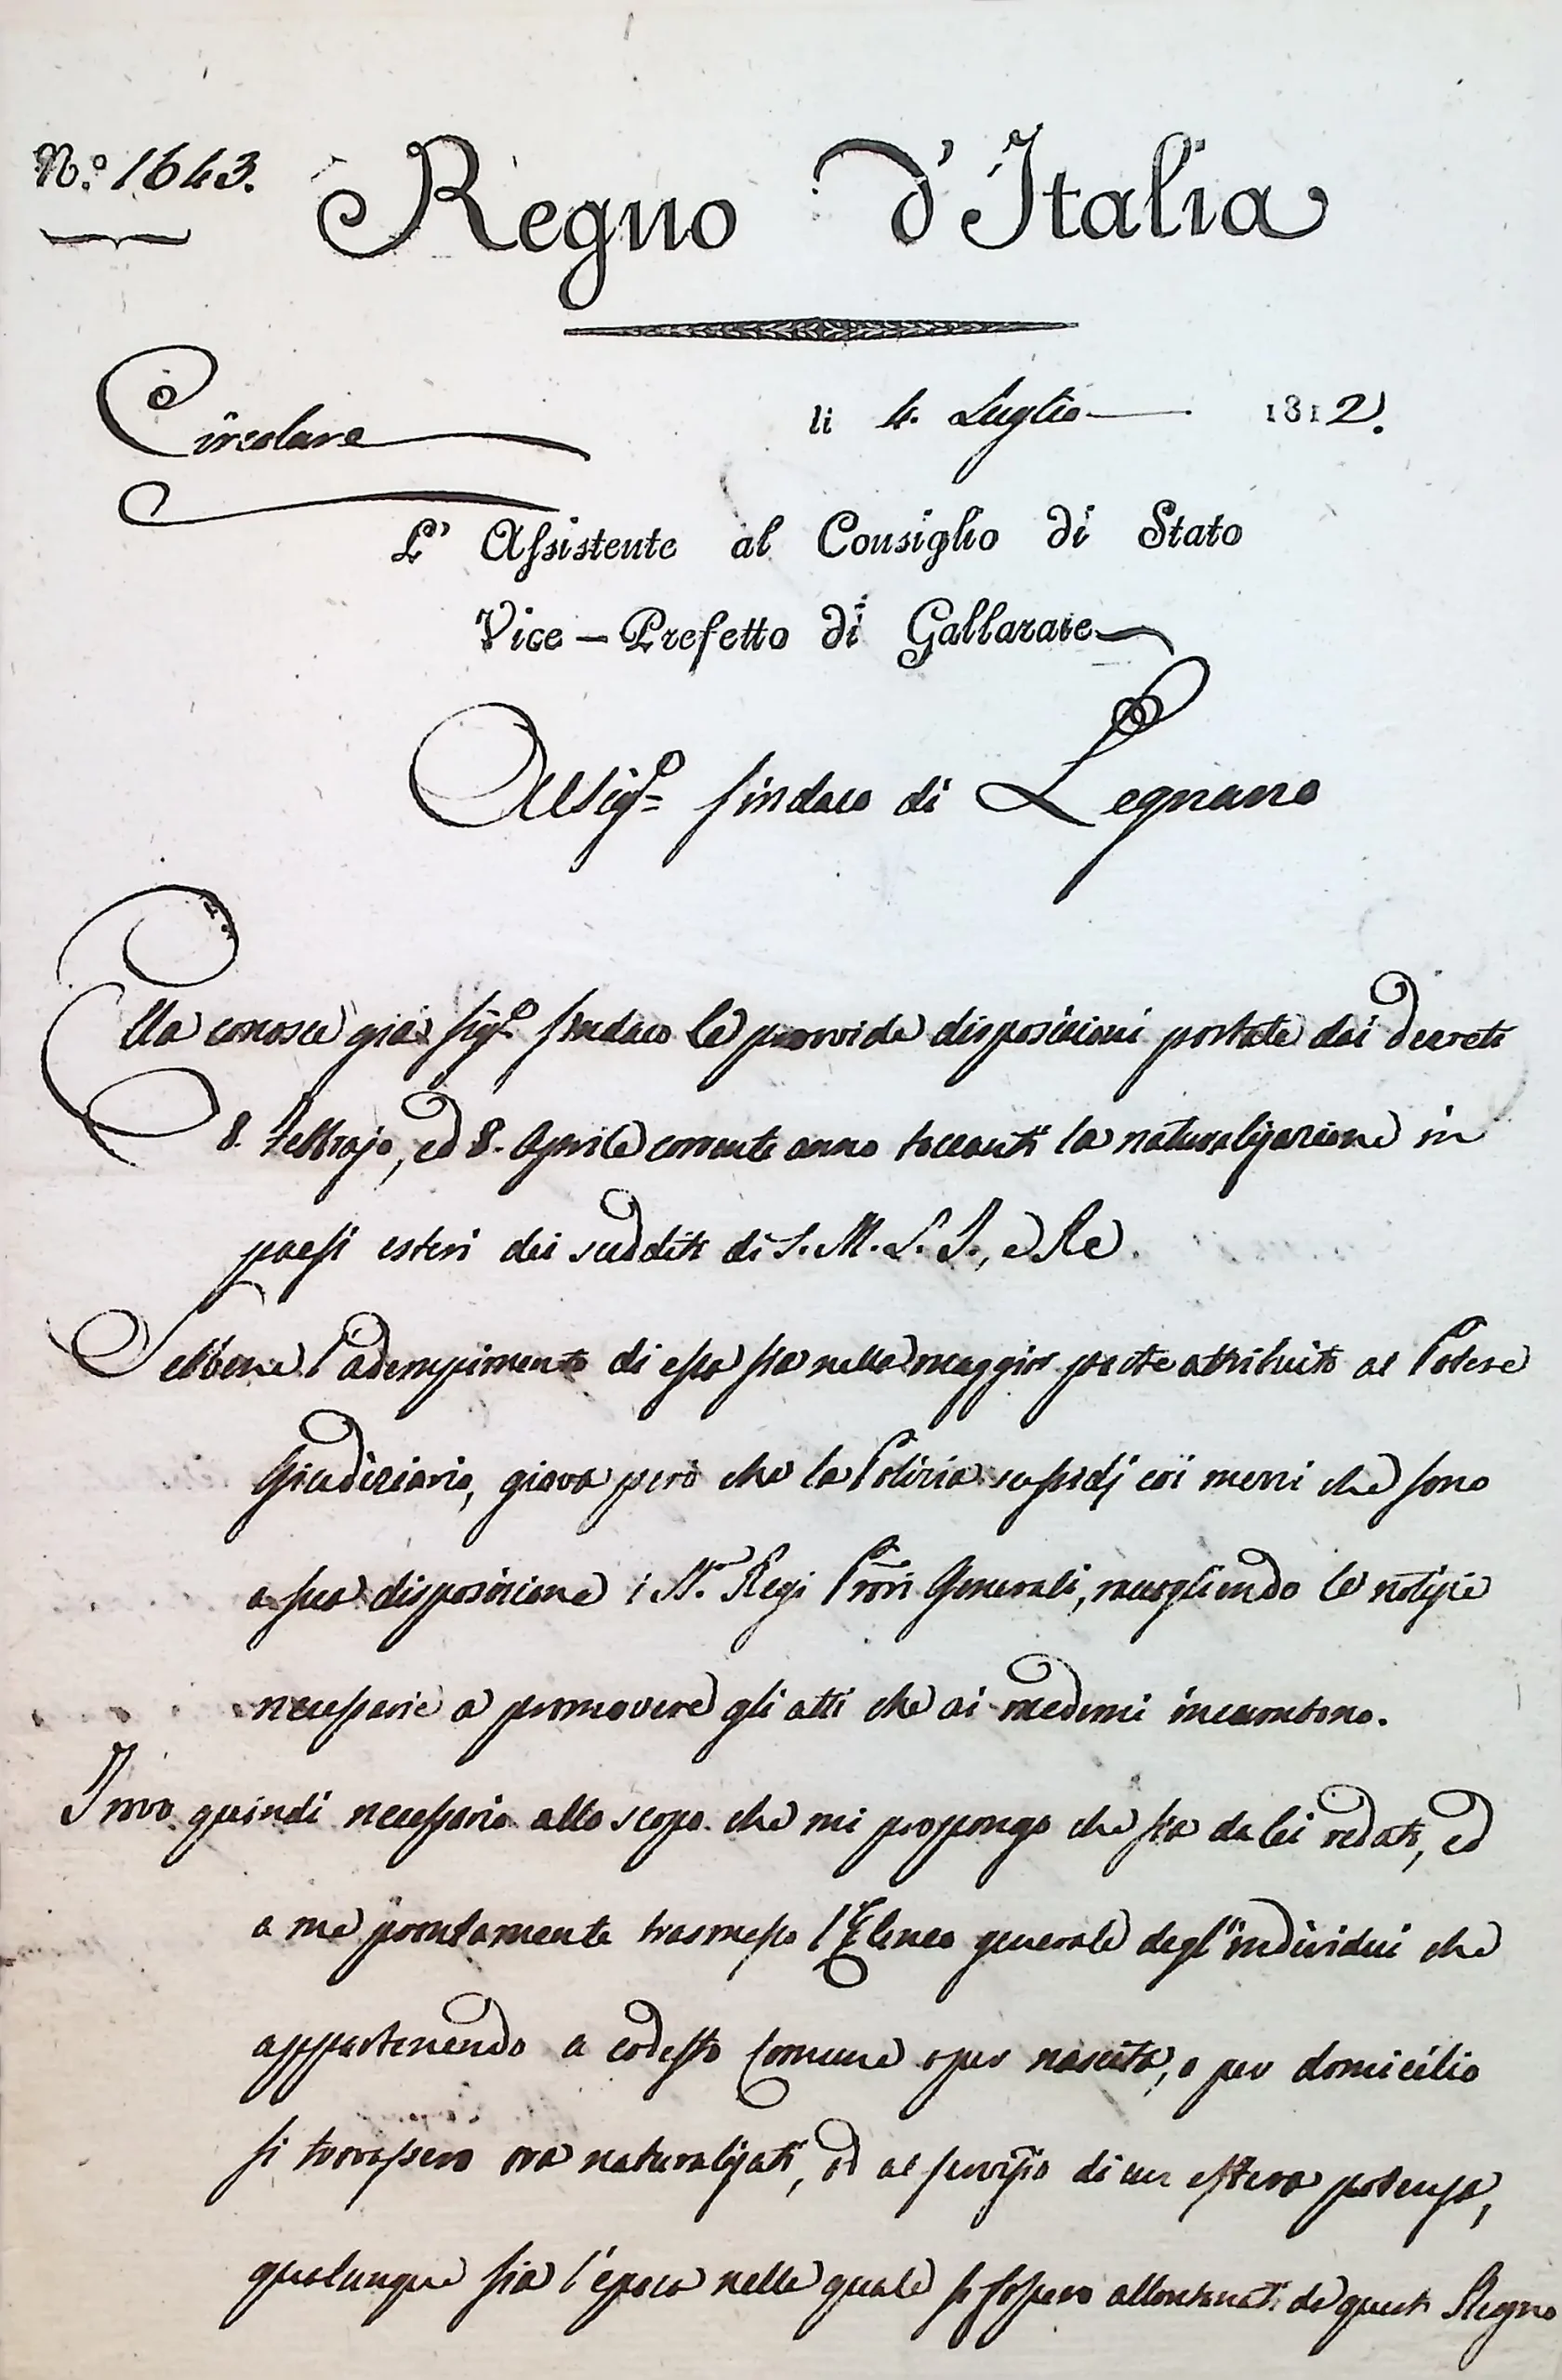 N.° 1643. Regno d'Italia
Circolare
li 4. Luglio 1812.
L' Assistente al Consiglio di Stato
Vice-Prefetto di Gallarate
Al Sig.r Sindaco di Legnano
Ella conosce già Sig.r Sindaco le provvide disposizioni portate dai decreti
8. Febbrajo, ed 8. Aprile corrente anno toccanti la naturalizzazione in
paesi esteri dei sudditi di S. M. L. I., e Re.
Sebbene l'adempimento di esse sia nella maggior parte attribuito al Potere
Giudiziario, giova però che la Polizia sussidj coi mezzi che sono
a sua disposizione i SS.ri Regj Prori Generali, raccogliendo le notizie
necessarie a promovere gli atti che ai medemi incombono.
Trovo quindi necessario allo scopo che mi propongo che sia da lei redatto, ed
a me prontamente trasmesso l'Elenco generale degl'individui che
appartenendo a codesto Comune o per nascita, o per domicilio
si trovassero ora naturalizzati, od al servizio di un estera potenza,
qualunque sia l'epoca nella quale si fossero allontanati da questo Regno